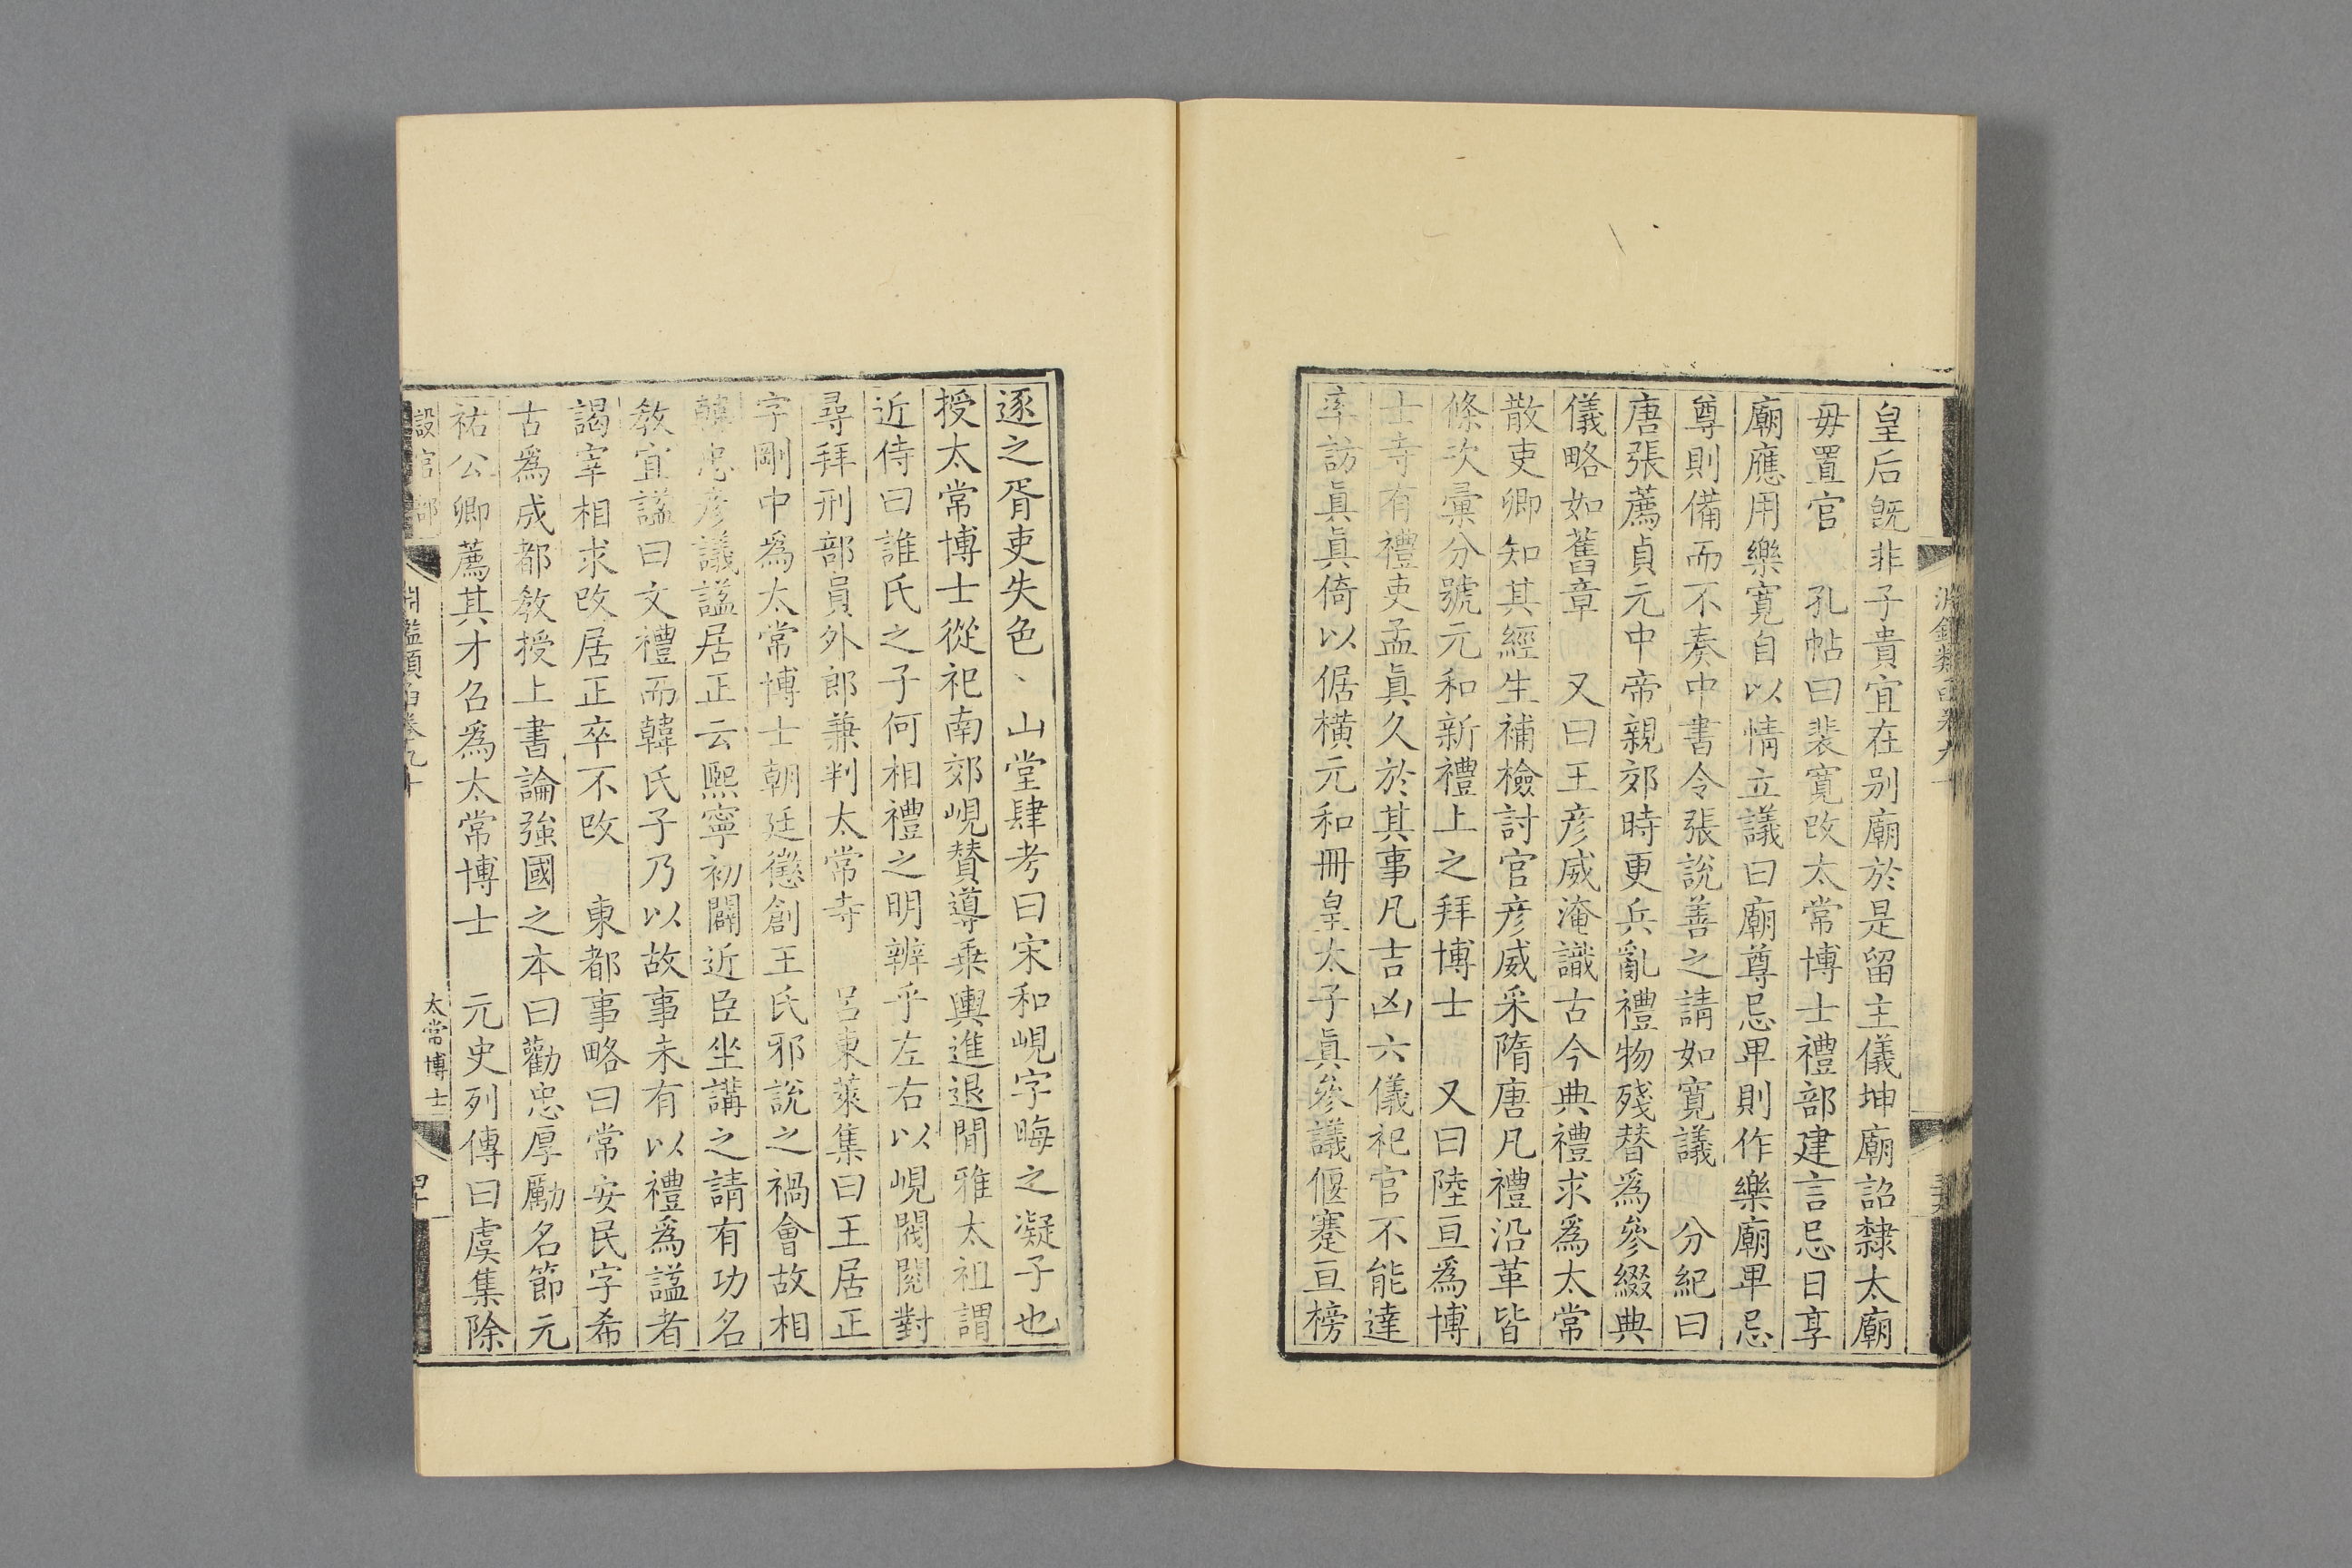 皇后旣非子貴宜在别廟於是留主儀坤廟詔隸太廟
毋置官　孔帖曰裴寛改太常博士禮部建言忌日享
廟應用樂寛自以情立議曰廟尊忌卑則作樂廟卑忌
尊則備而不奏中書令張説善之請如寛議　分紀曰
唐張薦貞元中帝親郊時更兵亂禮物殘替爲參綴典
儀略如舊章　又曰王彦威淹識古今典禮求爲太常
散吏卿知其經生補檢討官彦威采隋唐凡禮沿革皆
條次彚分號元和新禮上之拜博士　又曰陸亘爲博
士寺有禮吏孟眞久於其事凡吉凶六儀祀官不能達
率訪眞眞倚以倨橫元和冊皇太子眞參議偃蹇亘榜
逐之胥吏失色、山堂肆考曰宋和峴字晦之凝子也
授太常博士從祀南郊峴賛導乗輿進退閒雅太祖謂
近侍曰誰氏之子何相禮之明辨乎左右以峴閥閱對
尋拜刑部員外郎兼判太常寺　呂東萊集曰王居正
字剛中爲太常博士朝廷懲創王氏邪説之禍會故相
韓忠彦議諡居正云熙寧初闢近臣坐講之請有功名
敎宜諡曰文禮而韓氏子乃以故事未有以禮爲諡者
謁宰相求改居正卒不改　東都事略曰常安民字希
古爲成都敎授上書論強國之本曰勸忠厚勵名節元
祐公卿薦其才召爲太常博士　元史列傳曰虞集除
設官部　淵鑑類函卷九十　太常博士